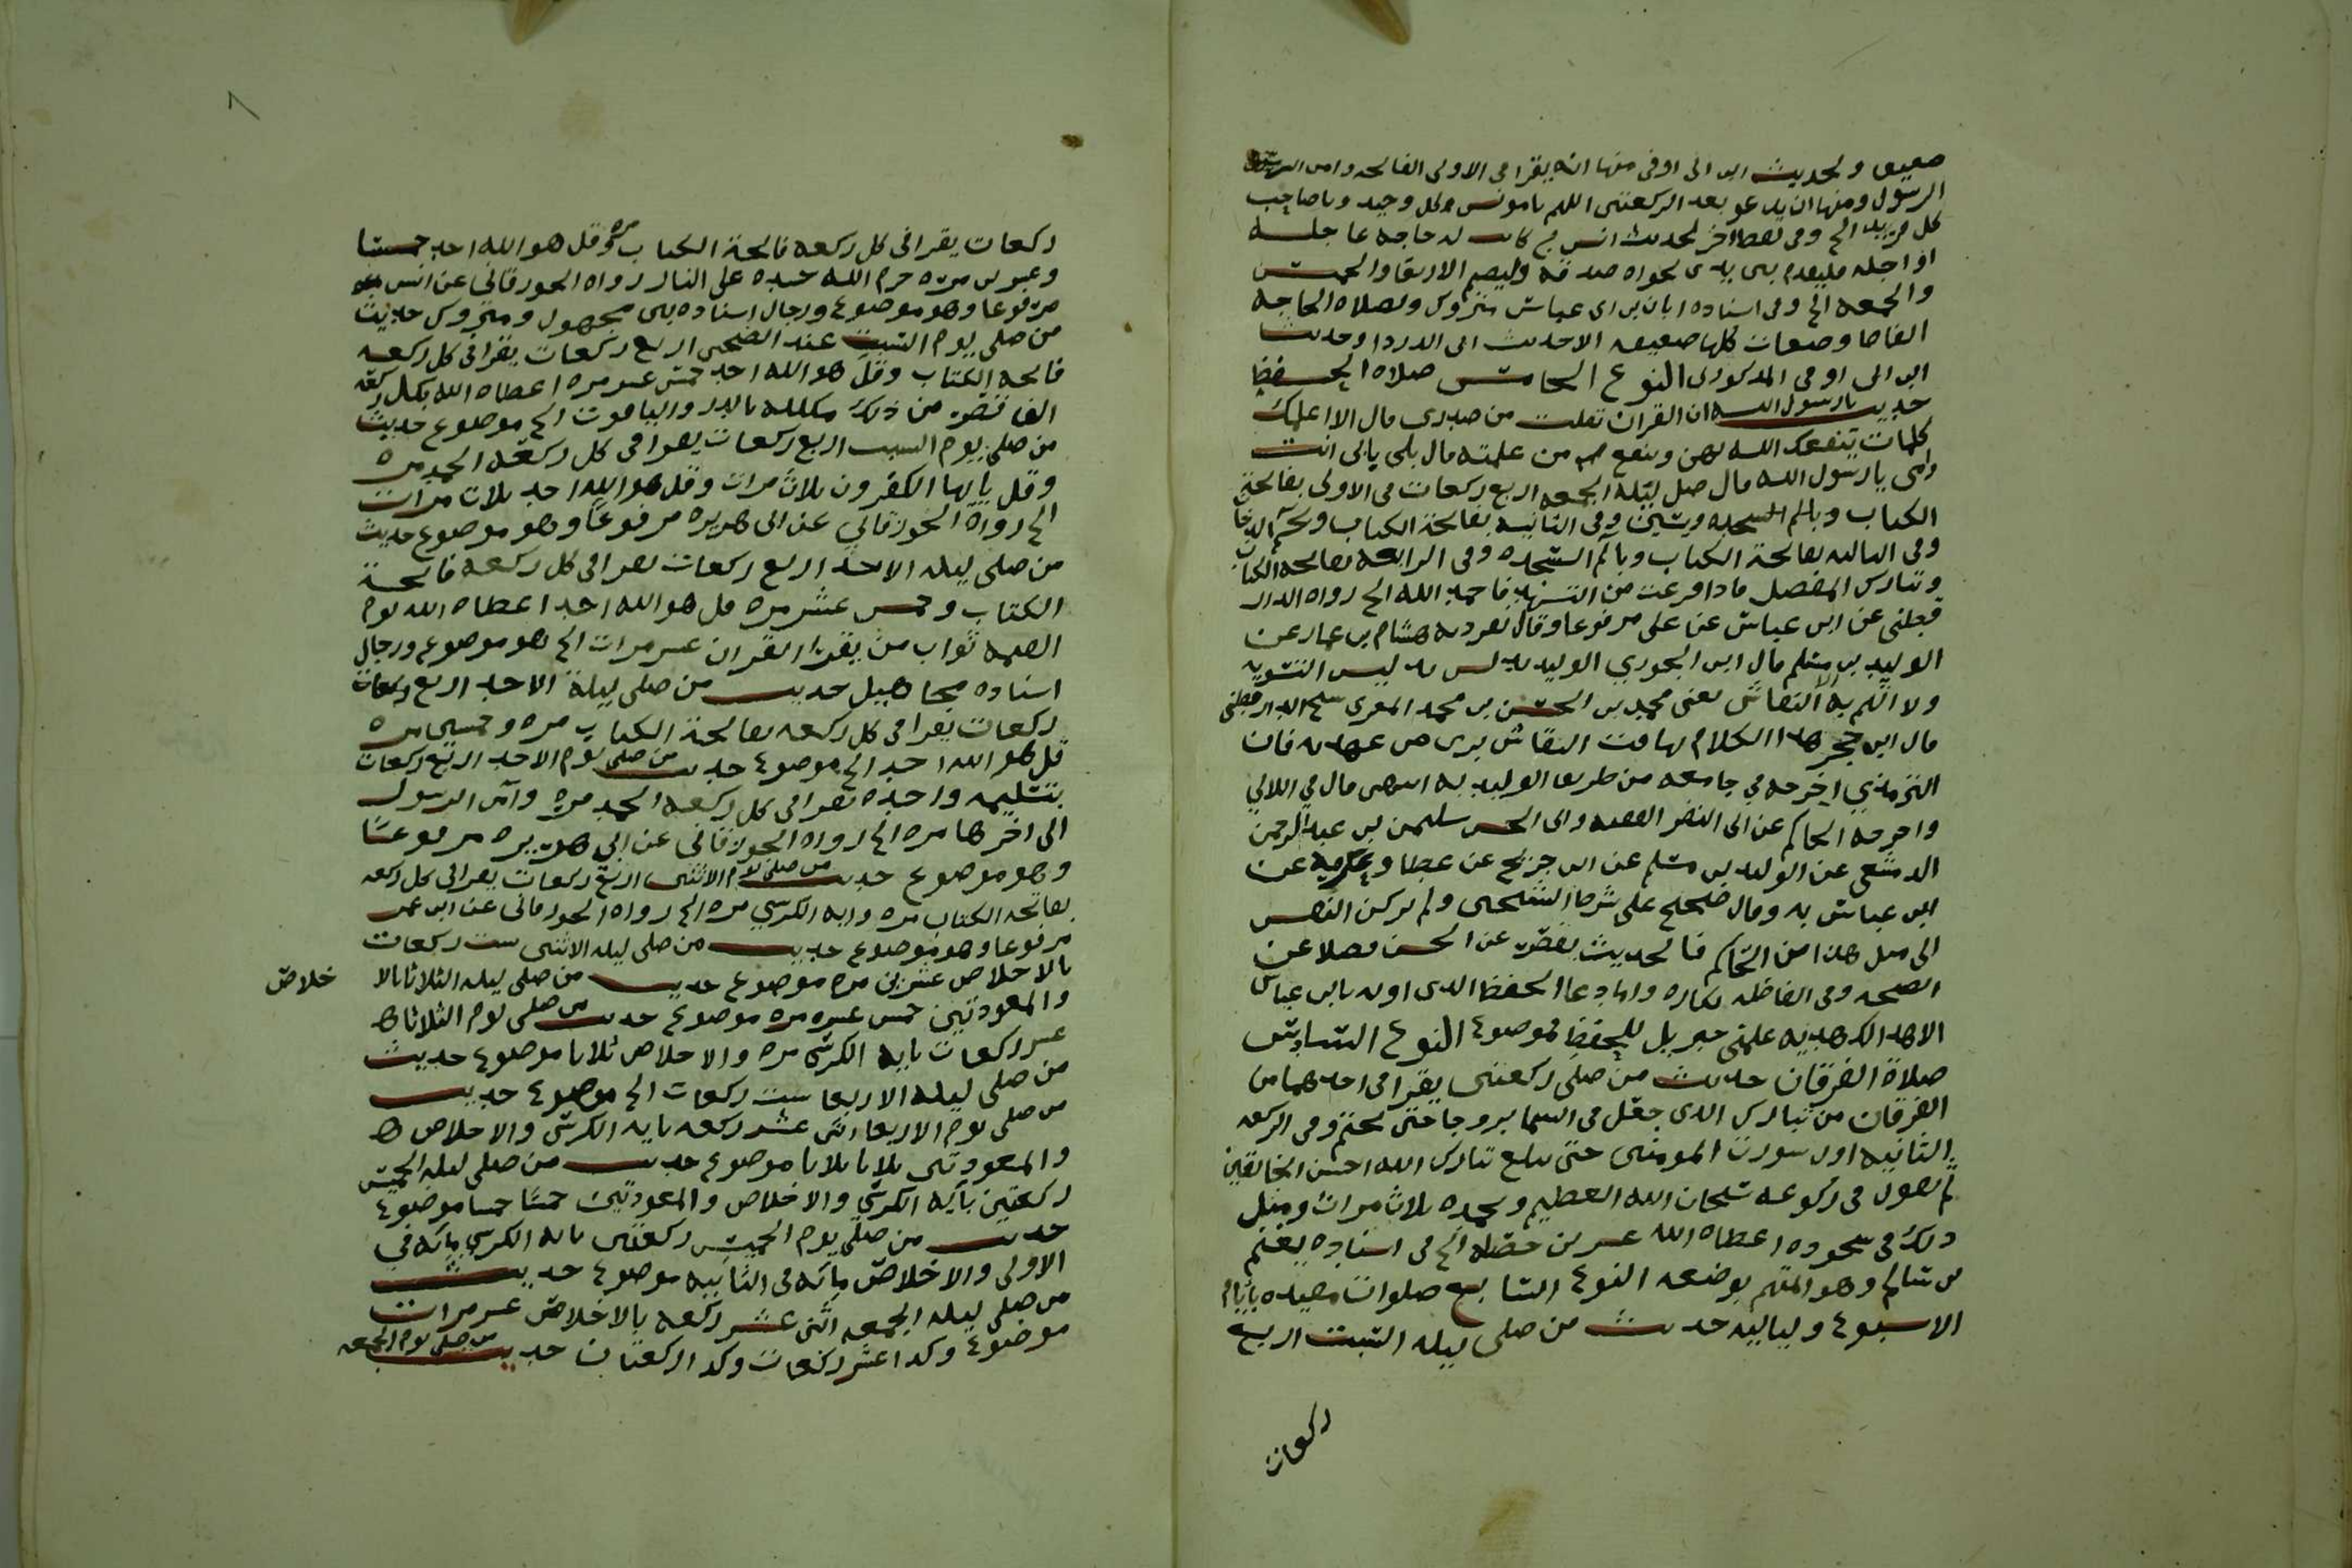 ضعيف ولحديث ابن ابي اوفى منها انه يقرا في الاولى الفاتحه وامن الرسول
الرسول ومنها ان يدعو بعد الركعتين اللهم يا مونس كل وحيد ويا صاحب
كل فريد الخ وفي لفظ اخر لحديث انس من كانت له حاجه عاجله
او اجله فليقدم بين يدي نجواه صدقه وليصم الاربعا والخميس
والجمعه الخ وفي اسناده ابان بن ابي عياش متروك ولصلاه الحاجه
الفاظا وصفات كلها ضعيفه الا حديث ابي الدردا وحديث
ابن ابي اوفى المذكورين النوع الخامس صلاه الحفظ
حديث يا رسول الله ان القران تفلت من صدري قال الا اعلمك
كلمات ينفعك الله بهن وينفع من علمته قال بلى يابي انت
وامي يا رسول الله قال صل ليله الجمعه اربع ركعات في الاولى بفاتحة
الكتاب ويس وفي الثانيه بفاتحة الكتاب وبحم الدخان
وفي الثالثه بفاتحة الكتاب وبالم السجده وفي الرابعه بفاتحه الكتاب
وتبارك المفصل فاذا فرغت من التشهد فاحمد الله الخ رواه الدار
قطني عن ابن عباس عن علي مرفوعا وقال تفرد به هشام بن عمار عن
الوليد بن مسلم قال ابن الجوزي الوليد يدلس تدليس التسويه
ولا اتهم به الا النقاش يعني محمد بن الحسن بن محمد المقري شيخ الدارقطني
قال ابن حجر هذا الكلام تهافت النقاش بري من عهدته فان
الترمذي اخرجه في جامعه من طريق الوليد به انتهى قال في اللالي
واخرجه الحاكم عن ابي النضر الفقيه وابي الحسن سليمن بن عبد الرحمن
الدمشقي عن الوليد بن مسلم عن ابن جريج عن عطا وعكرمه عن
ابن عباس به وقال صحيح على شرط الشيخين ولم تركن النفس
الى مثل هذا من الحاكم فالحديث يقصر عن الحسن فضلا عن
الصحه وفي الفاظه نكاره واما دعا الحفظ الذي اوله يابن عباس
الا اهد الك هديه علمني جبريل للحفظ فموضوع النوع السادس
صلاة الفرقان حديث من صلى ركعتين يقرا في احدهما من
الفرقان من تبارك الذي جعل في السما بروجا حتى يختم وفي الركعه
الثانيه اول سورة المومنين حتى يبلغ تبارك الله احسن الخالقين
ثم يقول في ركوعه سبحان الله العظيم وبحمده ثلاث مرات ومثل
ذلك في سجوده اعطاه الله عشرين خصله الخ في اسناده يغنم
بن سالم وهو المتهم بوضعه النوع السابع صلوات مقيده بايام
الاسبوع ولياليه حديث من صلى ليله السبت اربع
ركعات
ركعات يقرا في كل ركعه فاتحة الكتاب مره وقل هو الله احد خمسا
وعشرين مره حرم الله جسده على النار رواه الجورقاني عن انس
مرفوعا وهو موضوع ورجال اسناده بين مجهول ومتروك حديث
من صلى يوم السبت عند الضحى اربع ركعات يقرا في كل ركعه
فاتحه الكتاب وقل هو الله احد خمس عشر مره اعطاه الله بكل ركعه
الف قصر من ذهب مكلله بالدر والياقوت الخ موضوع حديث
من صلى يوم السبت اربع ركعات يقرا في كل ركعه الحمد مره
وقل يا ايها الكفرون ثلاث مرات وقل هو الله احد ثلاث مرات
الخ رواه الجورقاني عن ابي هريره مرفوعا وهو موضوع حديث
من صلى ليله الاحد اربع ركعات يقرا في كل ركعه فاتحة
الكتاب وخمس عشر مره قل هو الله احد اعطاه الله يوم
القيمه ثواب من يقرا القران عشر مرات الخ هو موضوع ورجال
اسناده مجاهيل حديث من صلى ليلة الاحد اربع ركعات
ركعات يقرا في كل ركعه بفاتحة الكتاب مره وخمسين مره
قل هو الله احد الخ موضوع حديث من صلى يوم الاحد اربع ركعات
بتسليمه واحده يقرا في كل ركعه الحمد مره وامن الرسول
الى اخرها مره الخ رواه الجورقاني عن ابي هريره مرفوعا
وهو موضوع حديث من صلى يوم الاثنين اربع ركعات يقرا في كل ركعه
بفاتحه الكتاب مره وايه الكرسي مره الخ رواه الجورقاني عن ابن عمر
مرفوعا وهو موضوع حديث من صلى ليله الاثنين ست ركعات
بالاخلاص عشرين مره موضوع حديث من صلى ليله الثلاثا بالا خلاص
والمعوذتين خمس عشره مره موضوع حديث من صلى يوم الثلاثا
عشر ركعات بايه الكرسي مره والاخلاص ثلاثا موضوع حديث
من صلى ليله الاربعا ست ركعات الخ موضوع حديث
من صلى يوم الاربعا اثنى عشر ركعه بايه الكرسي والاخلاص
والمعوذتين ثلاثا ثلاثا موضوع حديث من صلى ليله الخميس
ركعتين بآيه الكرسي والاخلاص والمعوذتين خمسا خمسا موضوع
حديث من صلى يوم الخميس ركعتين بايه الكرسي مائه في
الاولى والاخلاص مائه في الثانيه موضوع حديث
من صلى ليله الجمعه اثنى عشر ركعه بالاخلاص عشر مرات
موضوع وكذا عشر ركعات وكذا ركعتان حديث من صلى يوم الجمعه